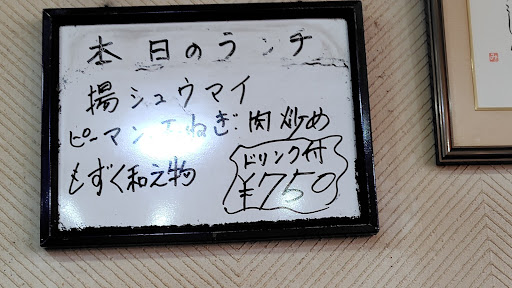 本日のランチ
揚シュウマイ
ピーマン玉ねぎ肉炒め
もずく和え物
ドリンク付
¥750